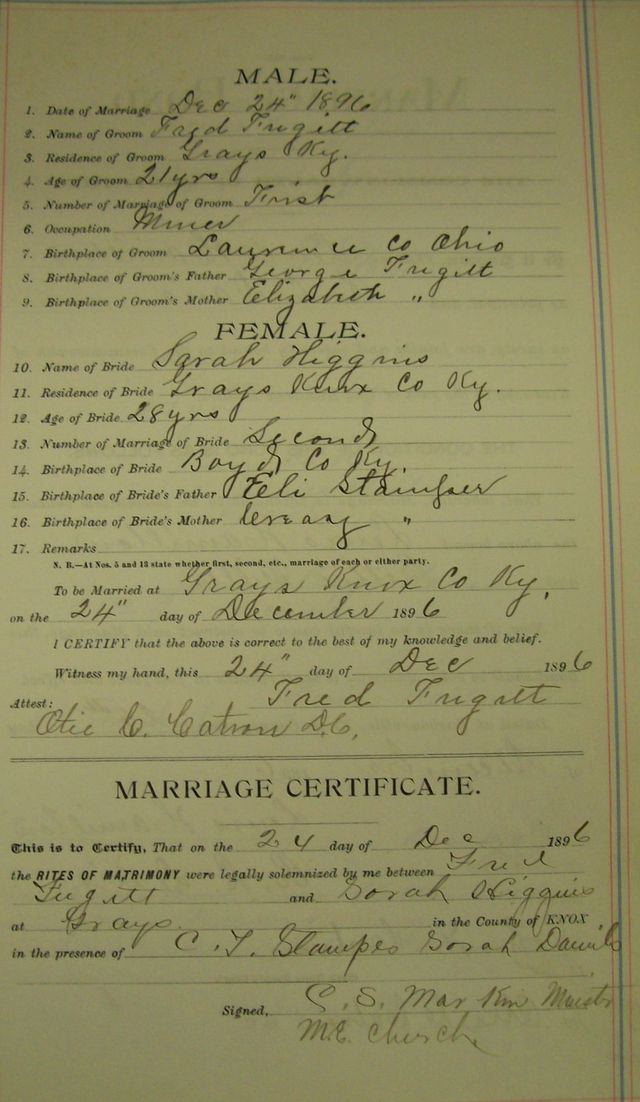 MALE.
1. Date of Marriage Dec 24" 1896
2. Name of Groom Fred Fugitt
3. Residence of Groom Grays Ky.
4. Age of Groom 21 yrs
5. Number of Marriage of Groom First
6. Occupation Miner
7. Birthplace of Groom Lawrence Co Ohio
8. Birthplace of Groom's Father George Fugitt
9. Birthplace of Groom's Mother Elizabeth "
FEMALE.
10. Name of Bride Sarah Higgins
11. Residence of Bride Grays Knox Co Ky.
12. Age of Bride 28 yrs
13. Number of Marriage of Bride Second
14. Birthplace of Bride Boyd Co Ky.
15. Birthplace of Bride's Father Eli Stamper
16. Birthplace of Bride's Mother "
17. Remarks
N. B.—At Nos. 5 and 13 state whether first, second, etc., marriage of each or either party.
To be Married at Grays Knox Co Ky,
on the 24" day of December 1896
I CERTIFY that the above is correct to the best of my knowledge and belief.
Witness my hand, this 24" day of Dec 1896
Fred Fugitt
Attest:
Otie C. Catron D.C.
MARRIAGE CERTIFICATE.
This is to Certify, That on the 24 day of Dec 1896
the RITES OF MATRIMONY were legally solemnized by me between Fred
Fugitt and Sarah Higgins
at Grays in the County of KNOX
in the presence of C. T. Stamper Sarah Daniels
Signed,
M.E. Church